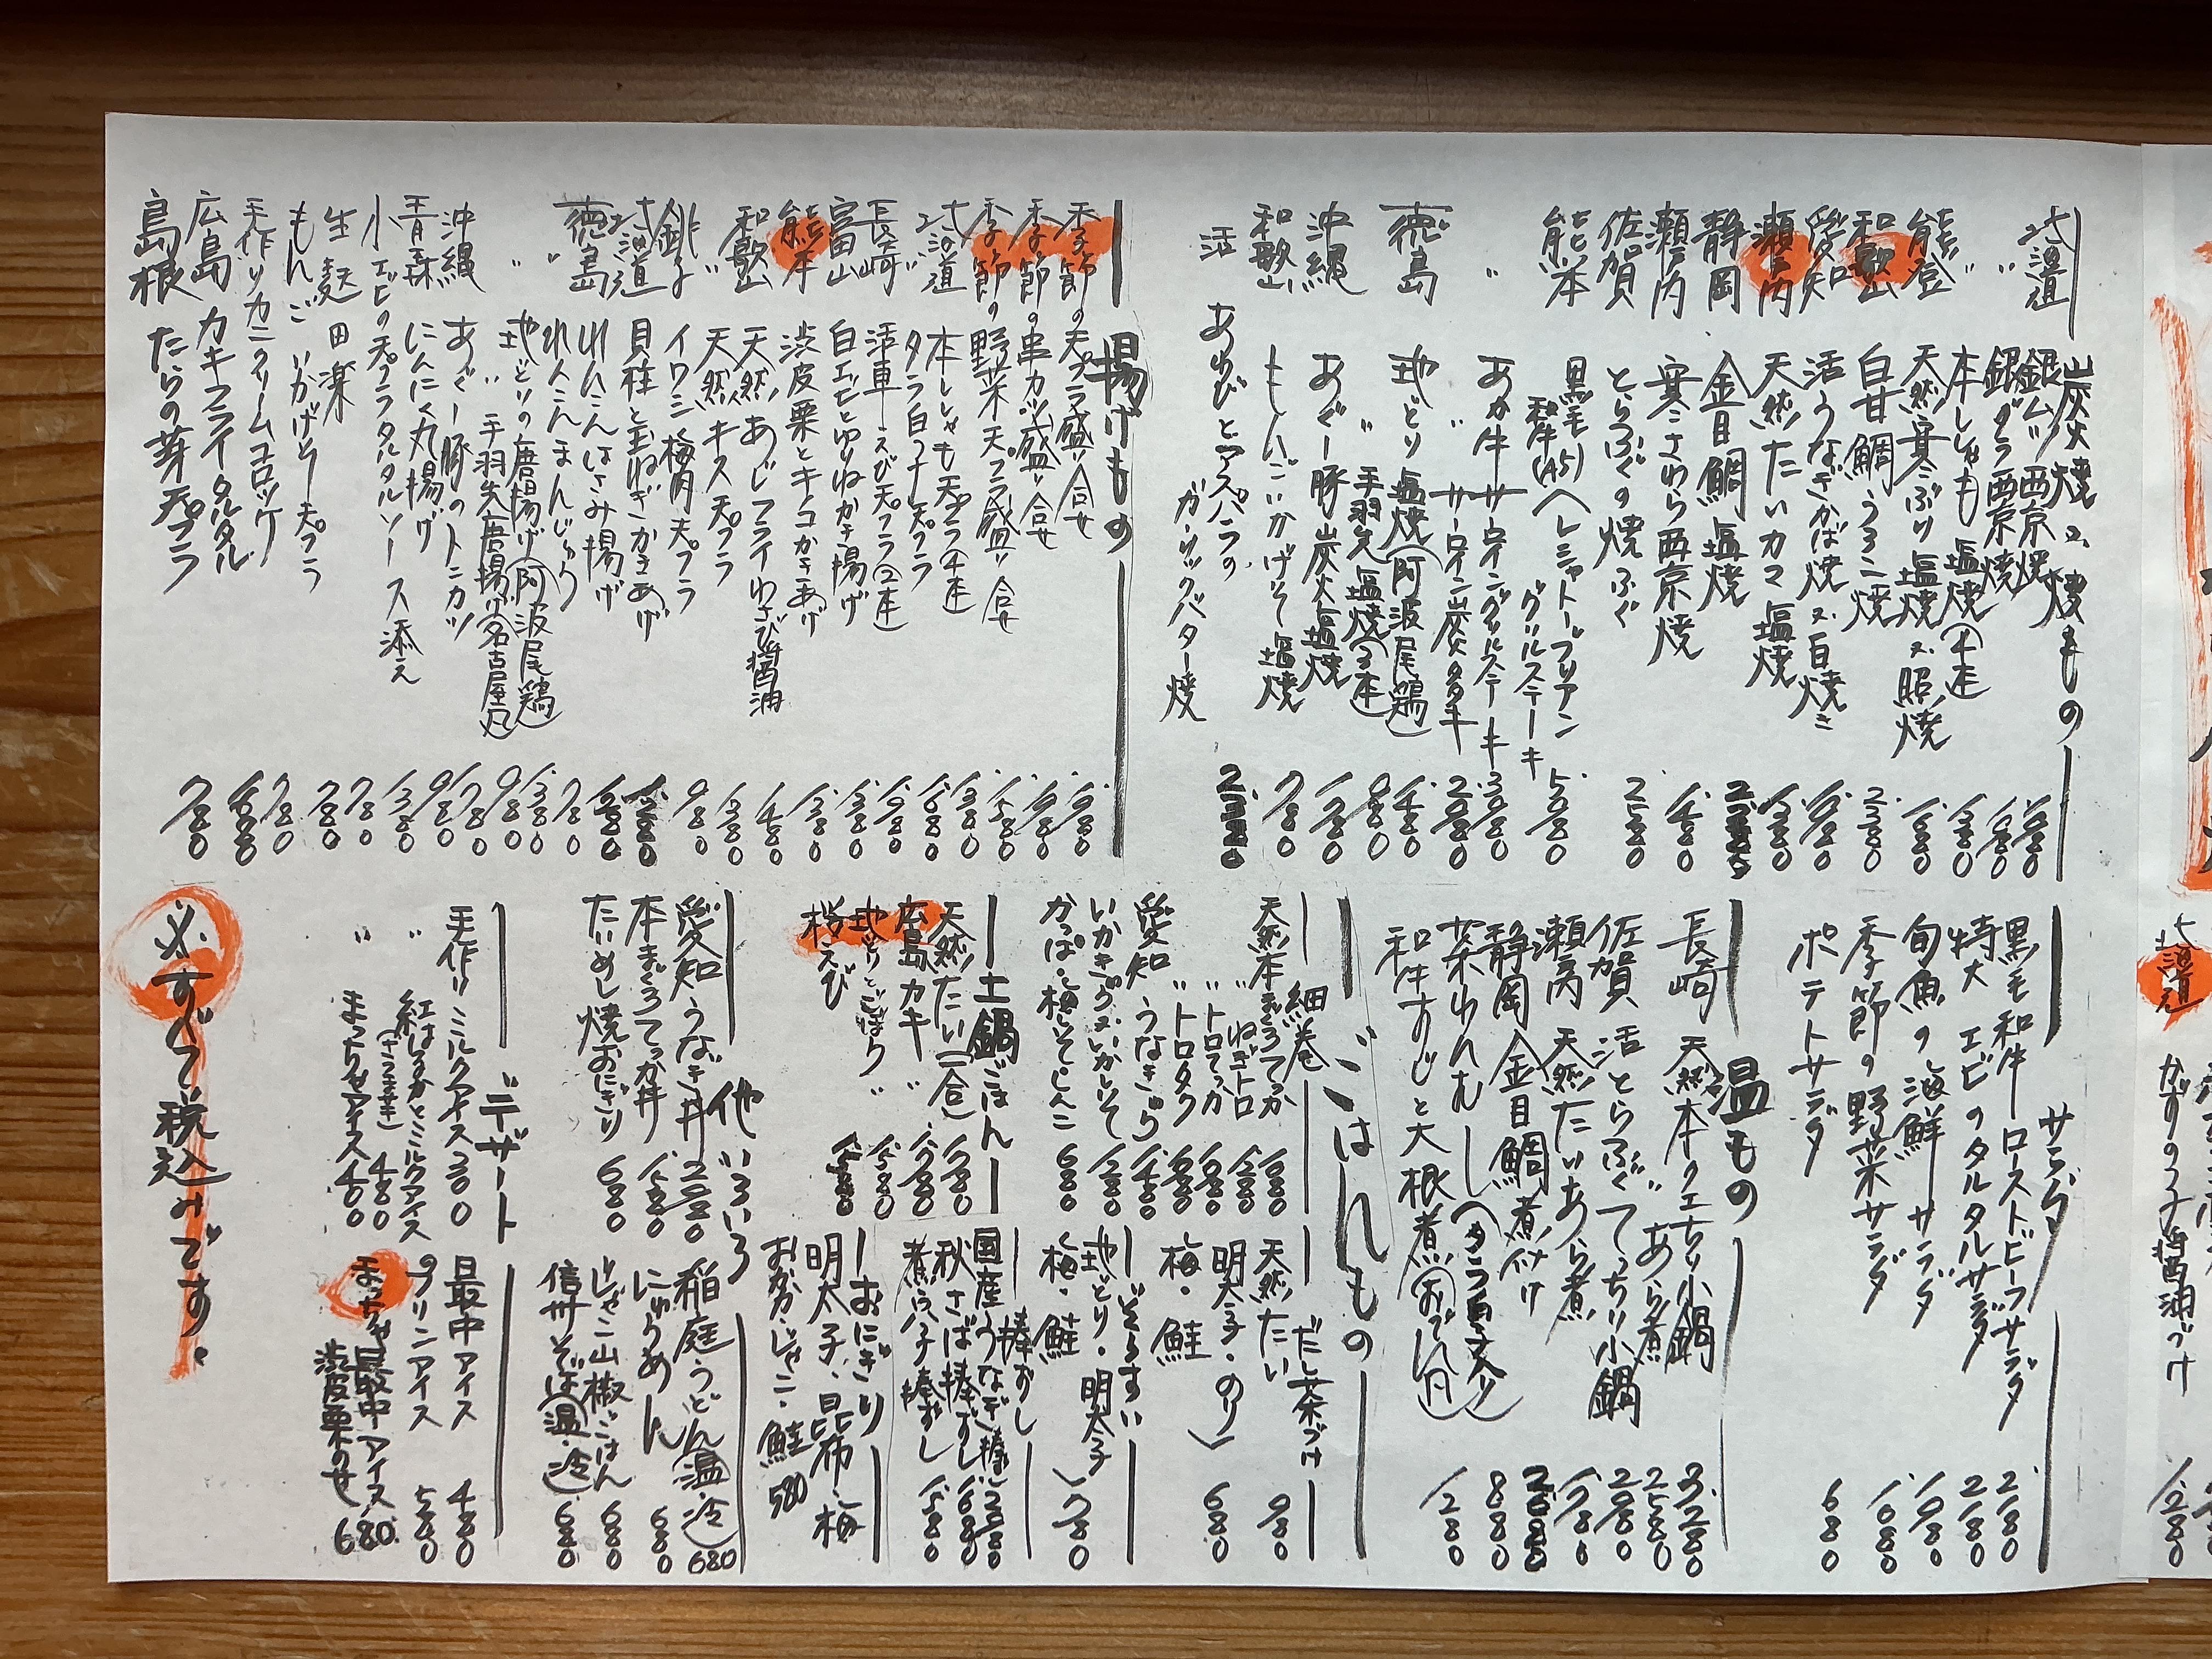 炭火焼又、焼もの
北海道 銀ムツ西京焼
〃 銀ダラ西京焼
〃 本ししゃも塩焼(4本) 1380
能登 天然寒ぶり塩焼又照焼
和歌山 白甘鯛うろこ焼 2380
愛知 活うなぎかば焼又白焼き
瀬戸内 天然たいカマ塩焼 1380
静岡 金目鯛塩焼
瀬戸内 寒さわら西京焼 1480
佐賀 とらふぐの焼ふぐ 2580
熊本 黒毛和牛(A5)ヘレシャトーブリアン
グリルステーキ 5080
〃 あか牛サーロイングリルステーキ 3080
〃 サーロイン炭火タタキ 2080
徳島 地どり塩焼(阿波尾鶏) 1480
〃 手羽先塩焼(3本) 980
沖縄 あぐー豚炭火塩焼 1280
和歌山 もちいごいかげそ塩焼 780
活 あわびとアスパラの
ガーリックバター焼
揚げもの
季節の天プラ盛り合せ
季節の串カツ盛り合せ
季節の野菜天プラ盛り合せ 1580
北海道 本ししゃも天プラ(4本) 1380
〃 タラ白子天プラ
長崎 活車えび天プラ(2本)
富山 白エビとゆりねかき揚げ 1380
熊本 渋皮栗とキノコかきあげ 1380
和歌山 天然あじフライわさび醤油 1480
〃 天然キス天プラ 1380
銚子 イワシ梅肉天プラ 980
北海道 貝柱と玉ねぎかきあげ
れんこんはさみ揚げ
れんこんまんじゅう 780
徳島 地どりの唐揚げ(阿波尾鶏) 1380
〃 手羽先唐揚げ(名古屋風) 980
沖縄 あぐー豚のトンカツ 1780
青森 にんにく丸揚げ 980
小エビの天プラタルタルソース添え 1380
生麩田楽 780
もんごいかげそ天プラ 780
手作りカニクリームコロッケ 780
広島 カキフライタルタル
島根 たらの芽天プラ 780
サラダ
黒毛和牛ローストビーフサラダ 2180
特大エビのタルタルサラダ 2180
旬魚の海鮮サラダ
季節の野菜サラダ 1080
ポテトサラダ 680
温もの
長崎 天然本クエちり小鍋 3280
〃 あら煮 2580
佐賀 活とらふぐてっちり小鍋 2080
瀬戸内 天然たいあら煮
静岡 金目鯛煮付け
茶わんむし(タラ白子入り) 880
和牛すじと大根煮(おでん風) 1280
ごはんもの
細巻
天然本まぐろてっか
〃 ねぎトロ 1280
〃 トロてっか
〃 トロタク
愛知 うなきゅう 1480
いかきゅう又いかしそ 1280
かっぱ・梅しそ・しんこ 680
だし茶づけ
天然たい 980
明太子・のり
梅・鮭 680
ぞうすい
地どり・明太子
梅・鮭 780
土鍋ごはん
天然たい(一合)
広島カキ 〃
地どりとごぼう 〃 1580
桜えび
棒ずし
国産うなぎ棒ずし
秋さば棒ずし 1680
煮穴子棒ずし 1580
おにぎり
明太子、昆布、梅
おかか・じゃこ・鮭 580
他いろいろ
愛知うなぎ丼 2080
本まぐろてっか丼
たいめし焼おにぎり 680
稲庭うどん(温・冷) 680
にゅうめん 680
じゃこ山椒ごはん 680
信州そば(温・冷) 680
デザート
手作りミルクアイス 300
〃 紅はるかとミルクアイス
(さつま芋) 480
〃 まっちゃアイス 400
最中アイス 480
プリンアイス 580
まっちゃ最中アイス
渋皮栗のせ 680
必ずすべて税込みです。
北海道
かずの子醤油づけ
1280